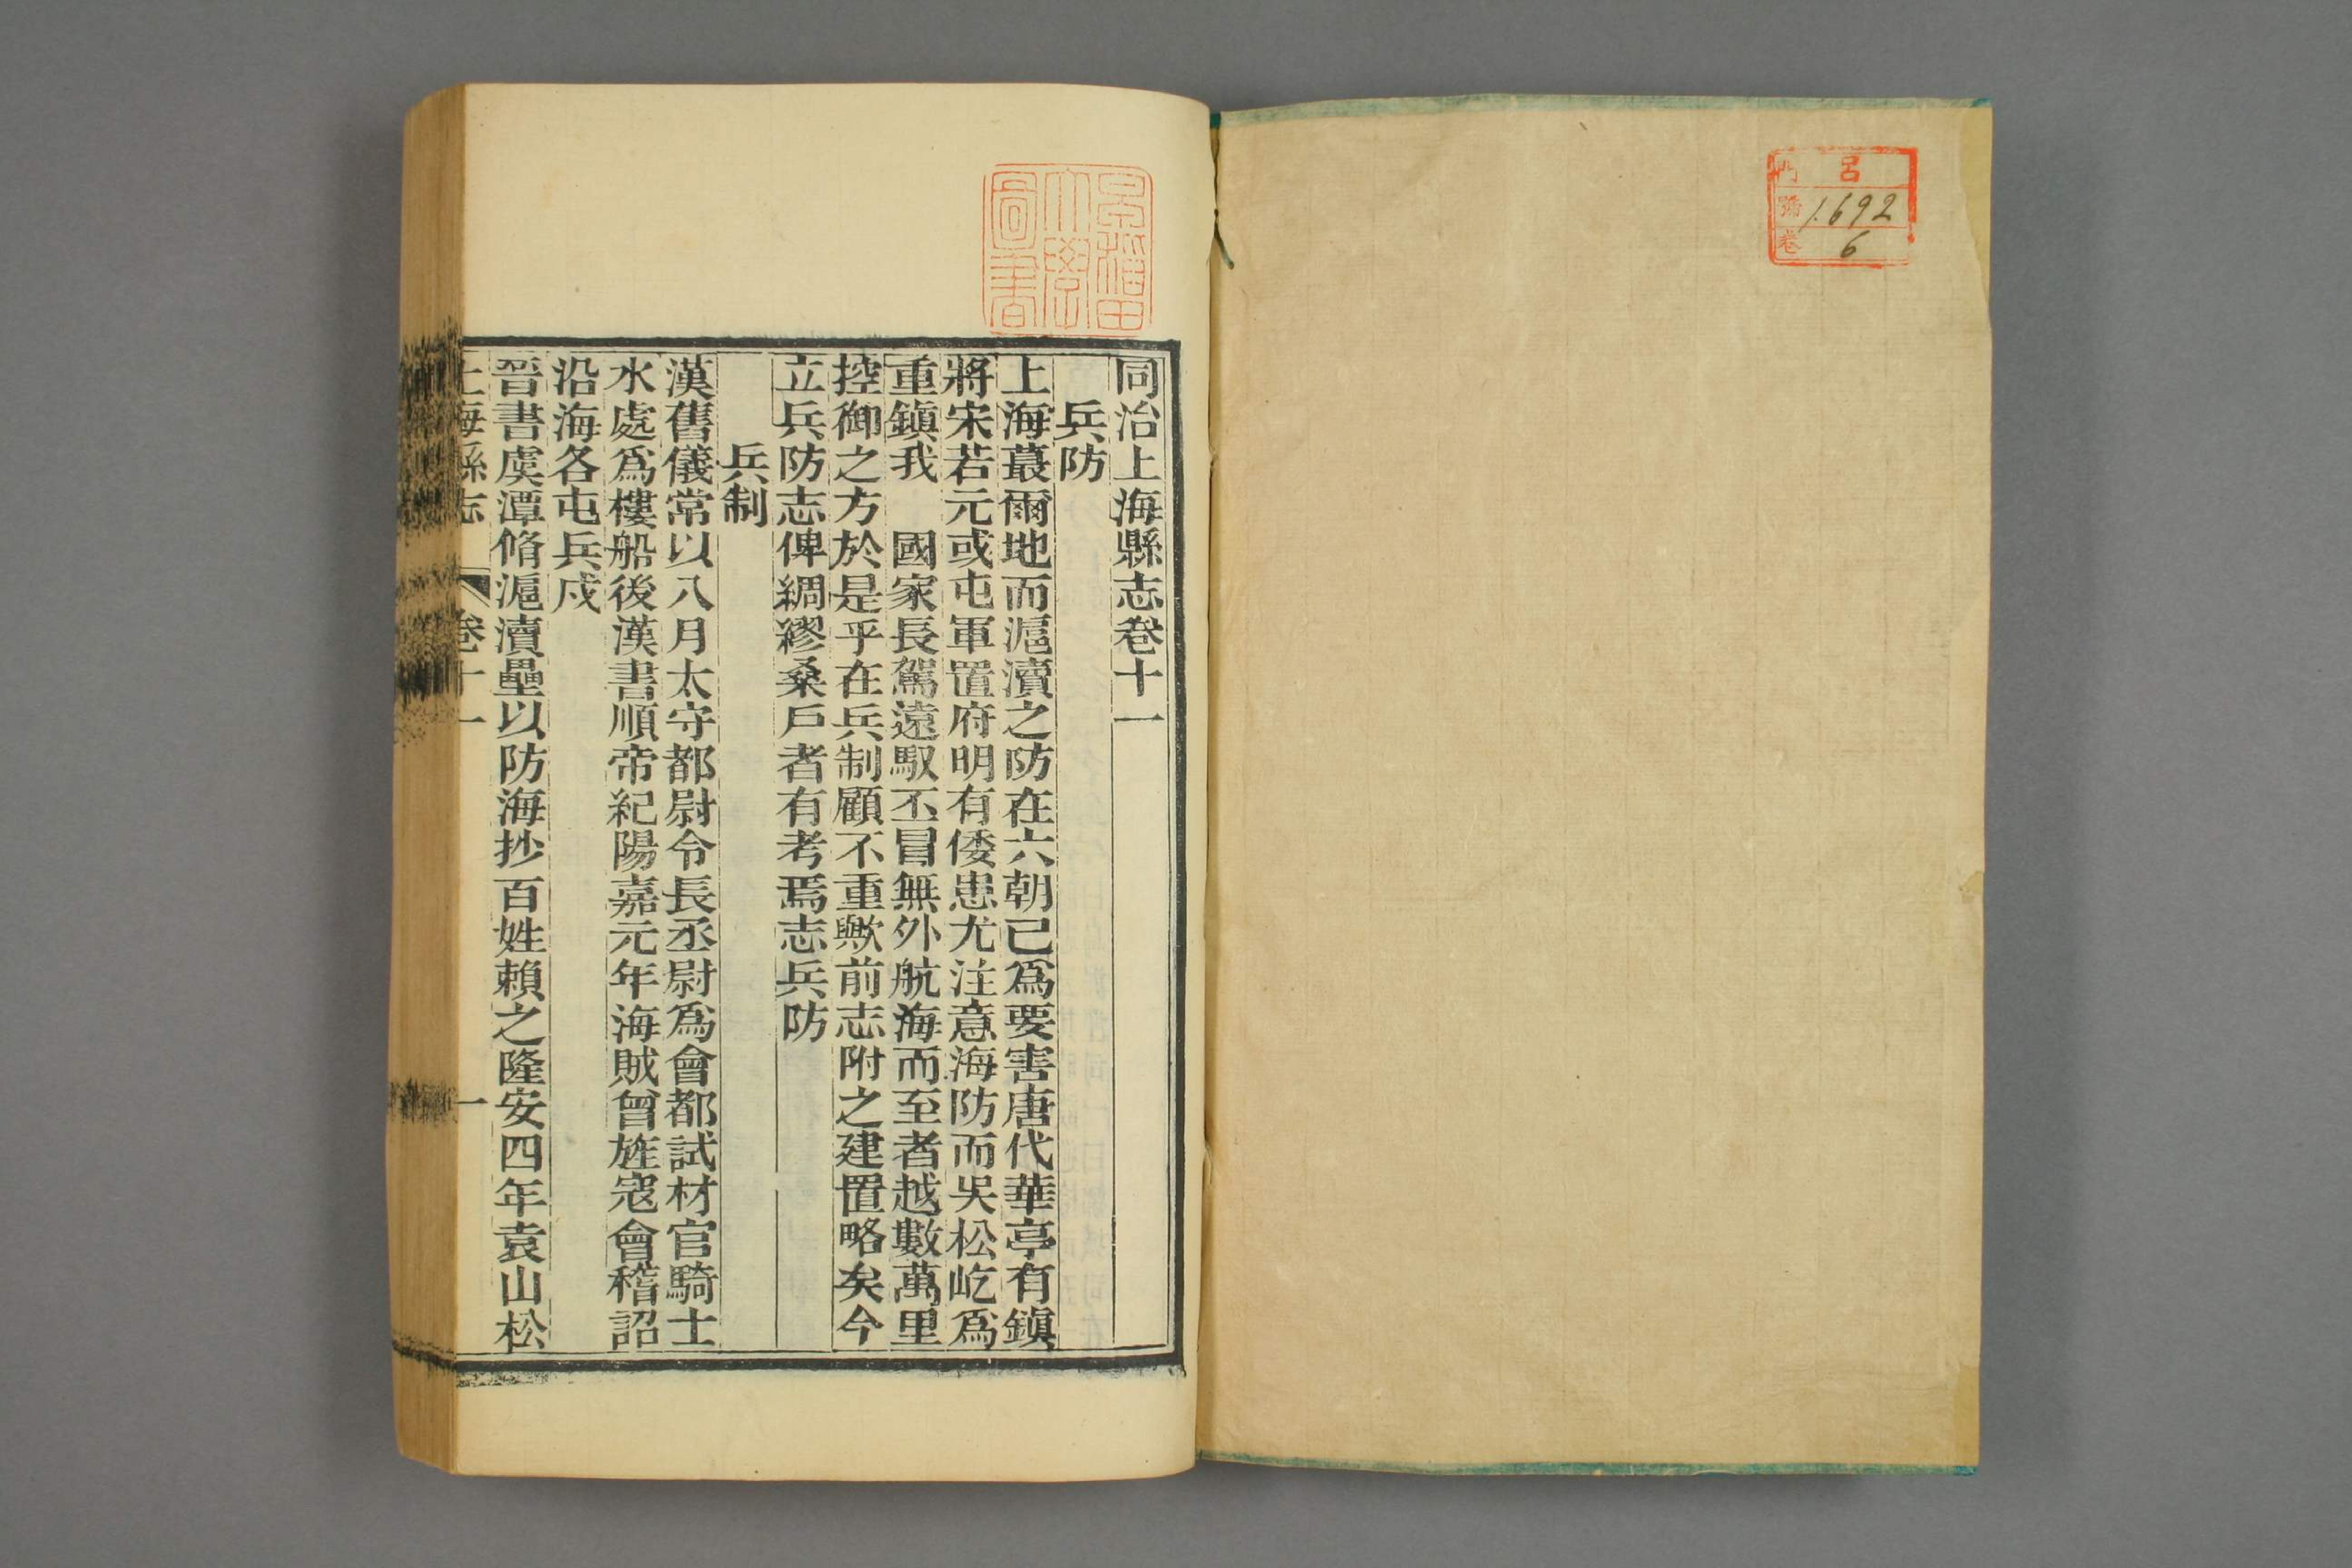 呂
門
號 1692
卷 6
早稻田
大學
圖書
同治上海縣志卷十一
兵防
上海蕞爾地而滬瀆之防在六朝已爲要害唐代華亭有鎮
將宋若元或屯軍置府明有倭患尤注意海防而吳松屹爲
重鎮我　國家長駕遠馭丕冒無外航海而至者越數萬里
控御之方於是乎在兵制顧不重歟前志附之建置略矣今
立兵防志俾綢繆桑戶者有考焉志兵防
兵制
漢舊儀常以八月太守都尉令長丞尉爲會都試材官騎士
水處爲樓船後漢書順帝紀陽嘉元年海賊曾旌寇會稽詔
沿海各屯兵戍
晉書虞潭脩滬瀆壘以防海抄百姓賴之隆安四年袁山松
上海縣志　卷十一　一